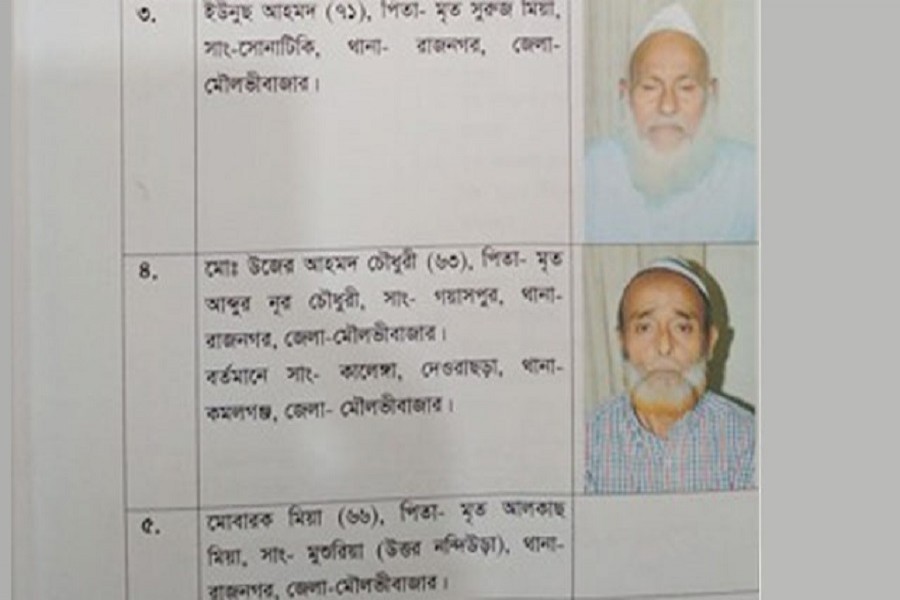 ৩.
ইউনুছ আহমদ (৭১), পিতা- মৃত সুরুজ মিয়া,
সাং-সোনাটিকি, থানা- রাজনগর, জেলা-
মৌলভীবাজার।
৪.
মোঃ উজের আহমদ চৌধুরী (৬৩), পিতা- মৃত
আব্দুর নূর চৌধুরী, সাং- গয়াসপুর, থানা-
রাজনগর, জেলা-মৌলভীবাজার।
বর্তমানে সাং- কালেঙ্গা, দেওরাছড়া, থানা-
কমলগঞ্জ, জেলা- মৌলভীবাজার।
৫.
মোবারক মিয়া (৬৬), পিতা- মৃত আলকাছ
মিয়া, সাং- মুশুরিয়া (উত্তর নন্দিউড়া), থানা-
রাজনগর, জেলা-মৌলভীবাজার।